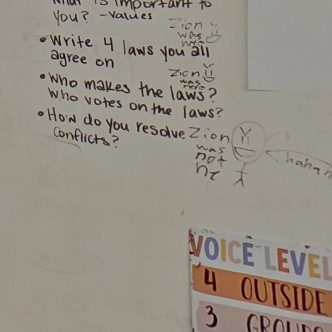 What is important to
you? - values
Zion
was
• Write 4 laws you all
agree on
Zion
was
here
• Who makes the laws?
Who votes on the laws?
• How do you resolve
conflicts?
Zion
was
not
he
haha
VOICE LEVEL
4 OUTSIDE
3 GROUP